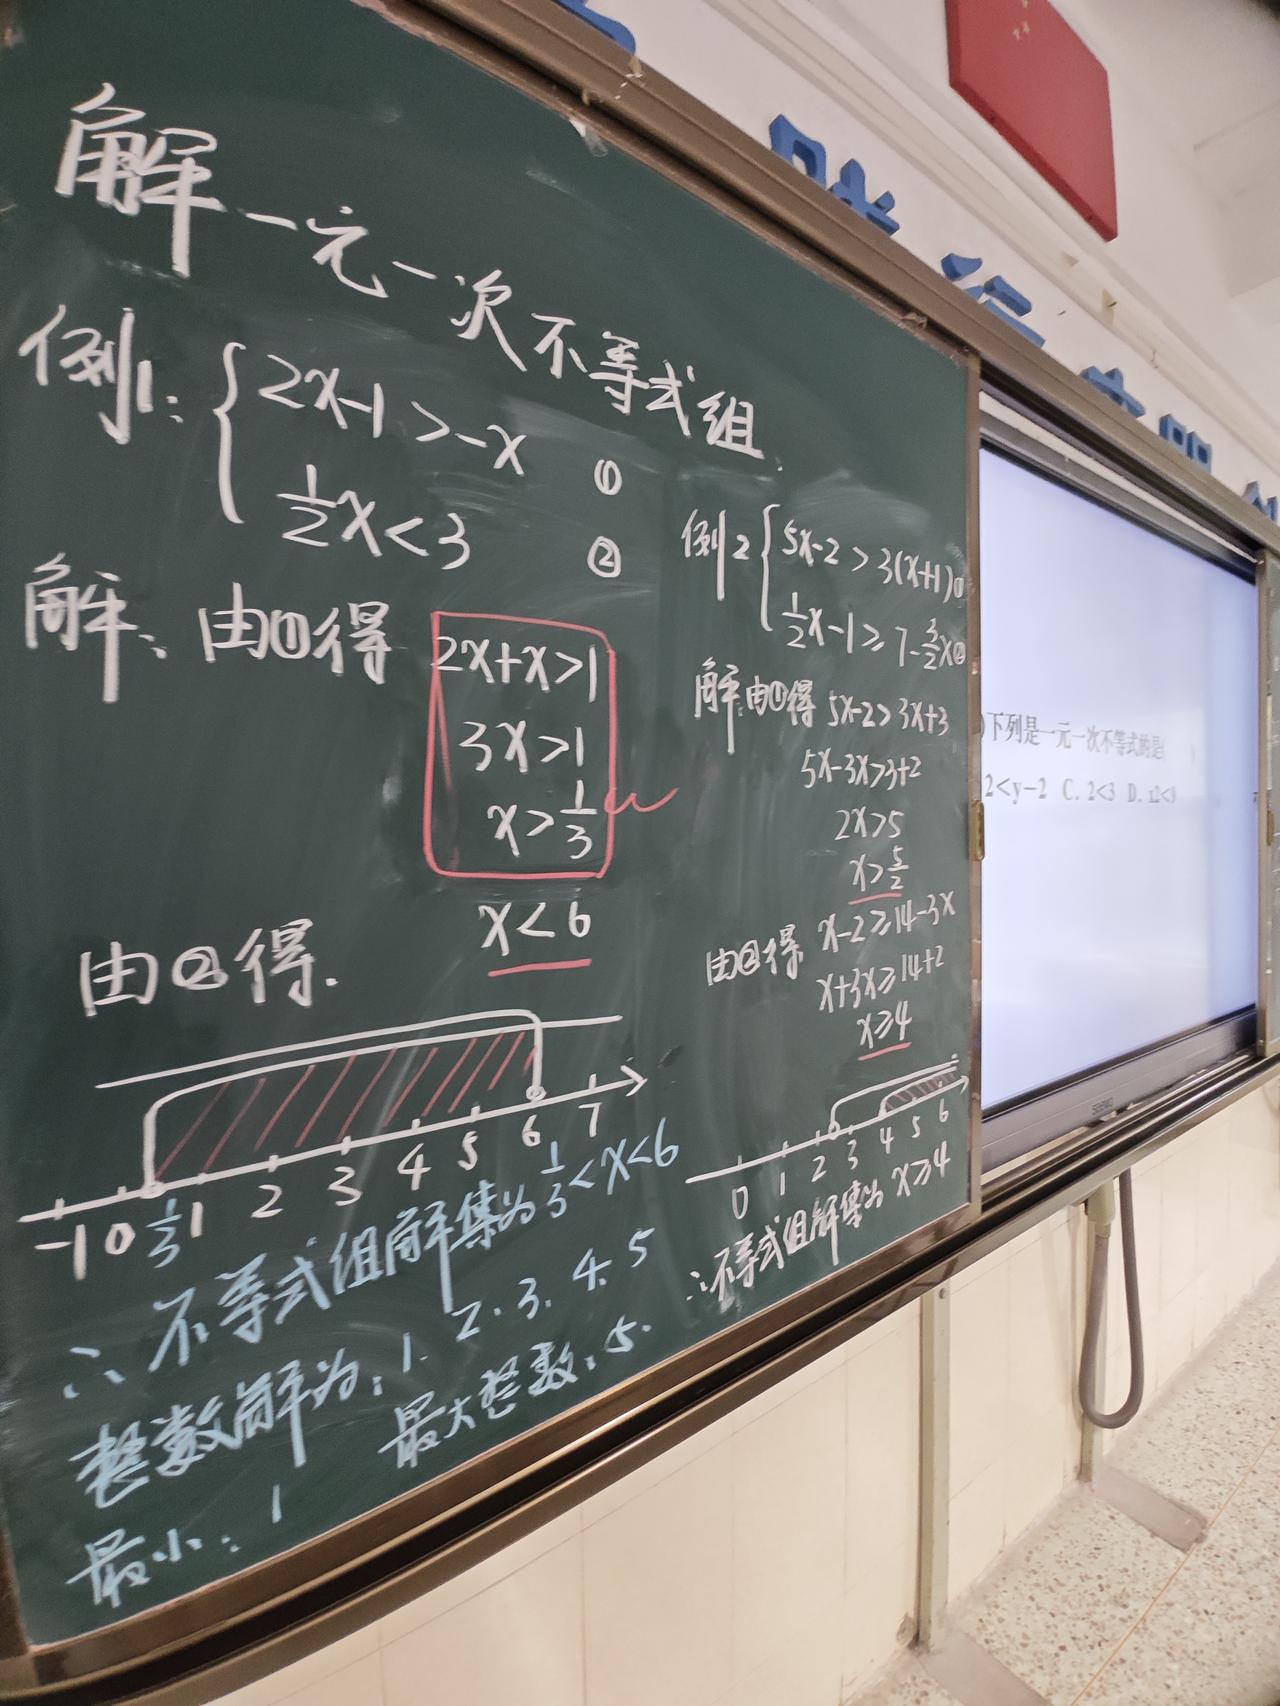 解一元一次不等式组
例1: { 2x-1>-x ①
1/2x<3 ②
解、由①得 2x+x>1
3x>1
x>1/3
由②得. x<6
-1 0 1/3 1 2 3 4 5 6 7
∴不等式组解集为1/3<x<6
整数解为:1. 2. 3. 4. 5
最大整数:5.
最小:1
例2 { 5x-2>3(x+1)①
1/2x-1≥7-3/2x②
解:由①得 5x-2>3x+3
5x-3x>3+2
2x>5
x>5/2
由②得 x-2≥14-3x
x+3x≥14+2
x≥4
0 1 2 3 4 5 6
∴不等式组解集为 x≥4
)下列是一元一次不等式的是(    )
2<y-2 C. 2<3 D. x2<9